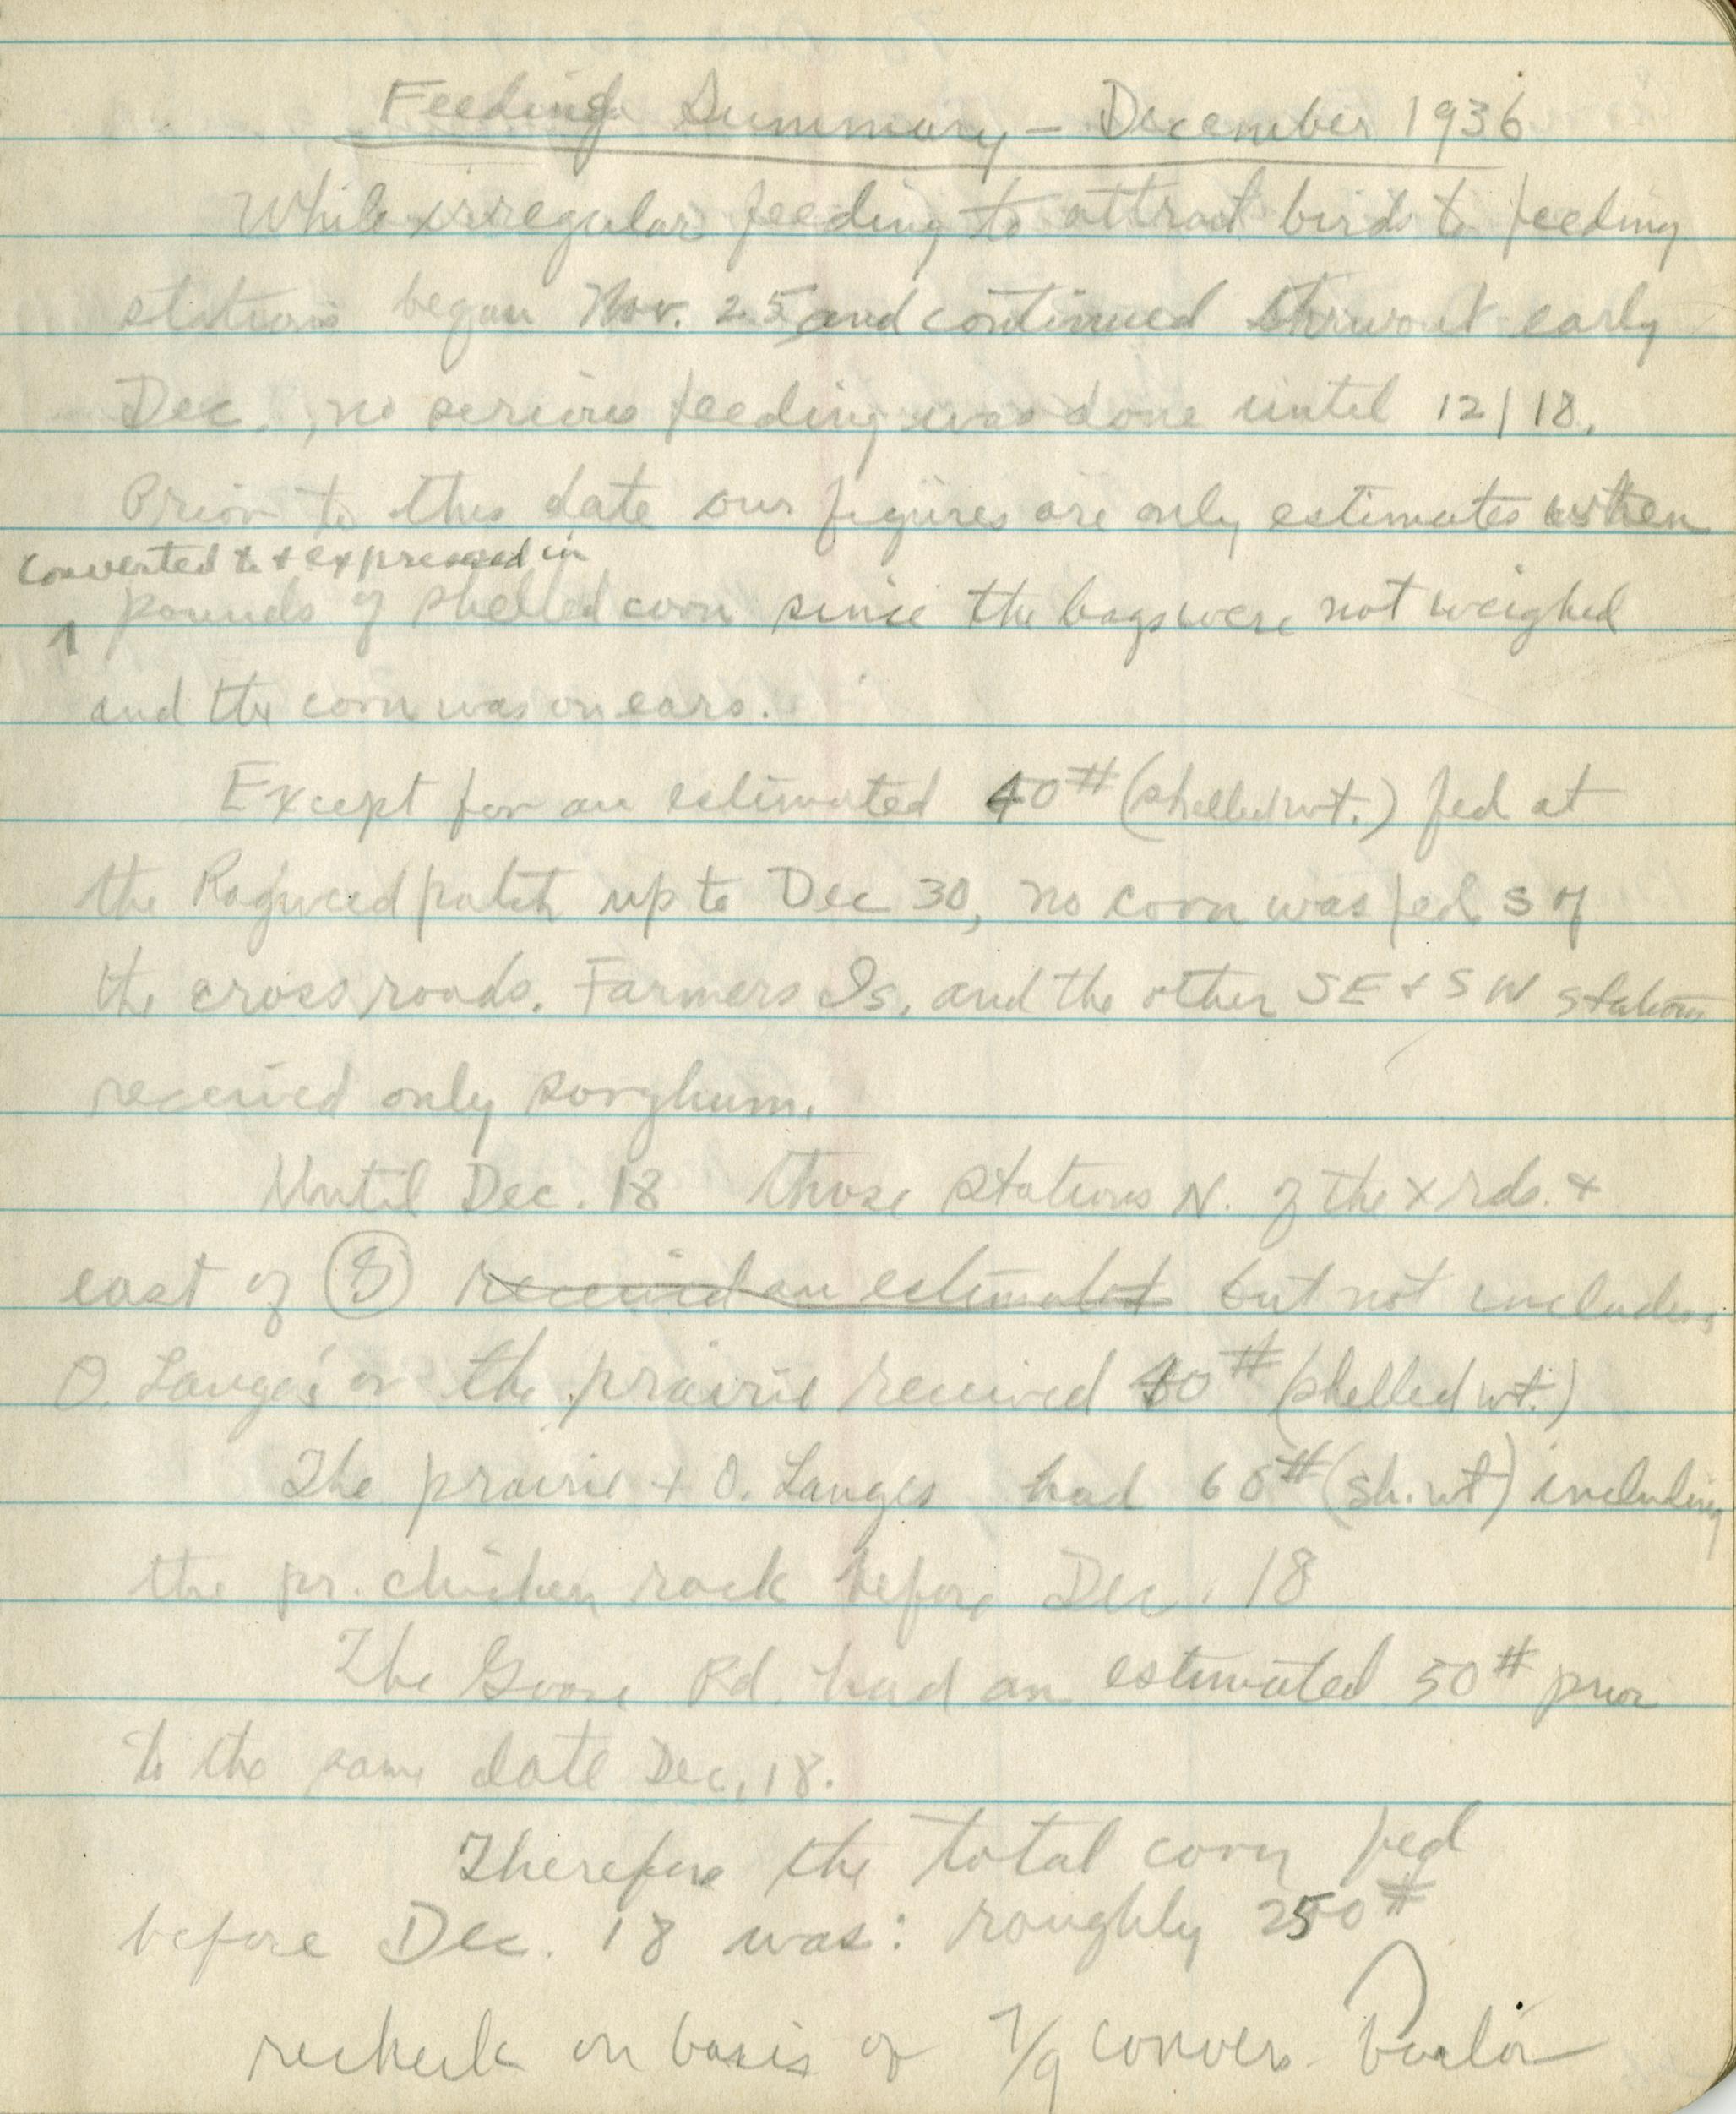 Feeding Summary - December 1936
While irregular feeding to attract birds to feeding
stations began Nov. 25 and continued thruout early
Dec., no serious feeding was done until 12/18.
Prior to this date our figures are only estimates when
converted to + expressed in
pounds of shelled corn since the bags were not weighed
and the corn was on ears.
Except for an estimated 40# (shelled wt.) fed at
the Ragweed patch up to Dec 30, no corn was fed S of
the cross roads. Farmers Is. and the other SE + SW stations
received only sorghum.
Until Dec. 18 those stations N. of the x rds. +
east of 8 received an estimated but not including
O. Langes or the prairie received 40# (shelled wt.)
The prairie + O. Langes had 60# (sh. wt) including
the pr. chicken rack before Dec. 18
The Goose Rd. had an estimated 50# prior
to the same date Dec. 18.
Therefore the total corn fed
before Dec. 18 was: roughly 250#
recheck on basis of 7/9 convers.